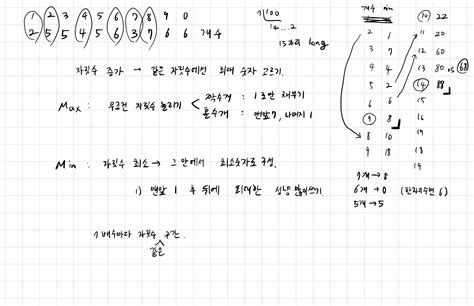 1 2 3 4 5 6 7 8 9 0
2 5 5 4 5 6 3 7 6 6 개수
1≤100
14...2
15자리 long
자릿수 증가 → 같은 자릿수에선 최대 숫자 고르기.
Max : 무조건 자릿수 늘리기 < 짝수개 : 1로만 채우기
홀수개 : 맨앞 7, 나머지 1
Min : 자릿수 최소 → 그 안에서 최소숫자로 구성.
1) 맨앞 1 후 뒤에 최대한 성냥 많이쓰기.
7 배수마다 자릿수 구간.
같은
개수 min
2 1
3 7
4 4
5 2
6 6
9 8
8 10
9 18
10 22
11 20
12 60
13 80 vs 68
14 88
15
16
19
18
19
7개 → 8
6개 → 0 (한자리수면 6)
5개 → 5